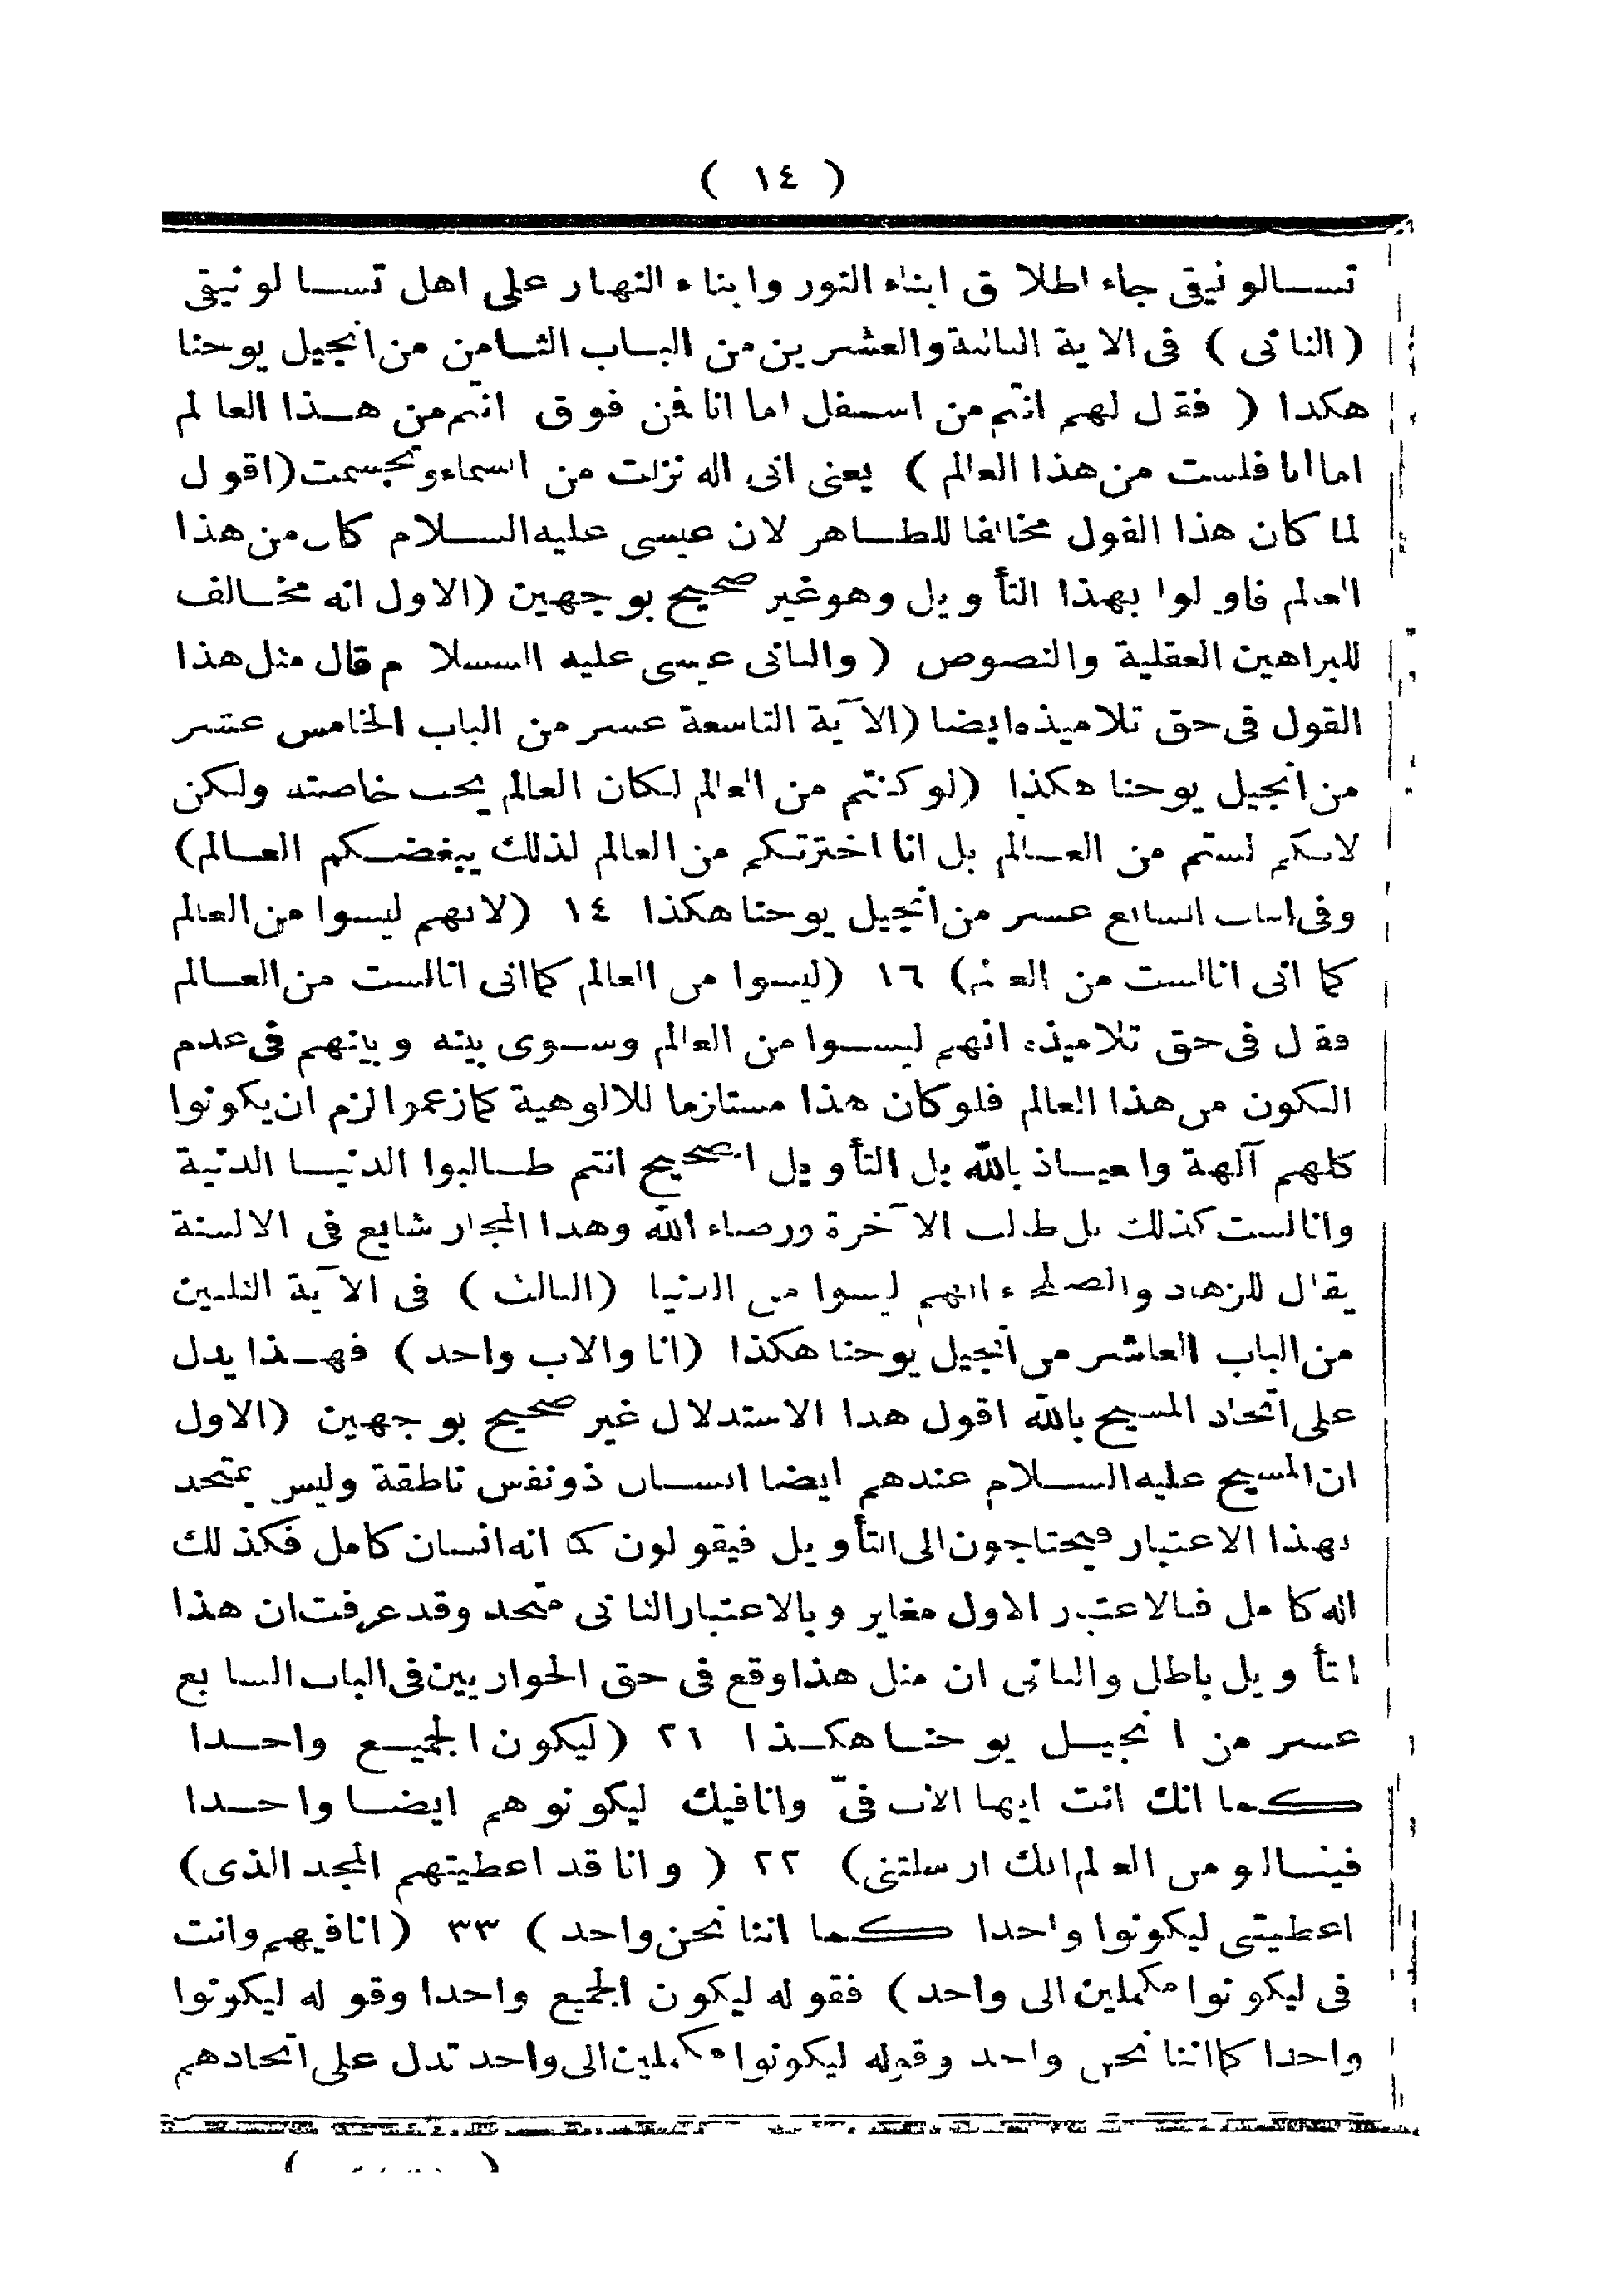 ( ١٤ )
تسالونيقى جاء اطلاق ابناء النور وابناء النهار على اهل تسالونيقى
(الثانى) فى الاية الثالثة والعشرين من الباب الثامن من انجيل يوحنا
هكذا ( فقال لهم انتم من اسفل اما انا فمن فوق انتم من هذا العالم
اما انا فلست من هذا العالم ) يعنى انى اله نزلت من السماء وتجسمت (اقول
لما كان هذا القول مخالفا للظاهر لان عيسى عليه السلام كان من هذا
العالم فاولوا بهذا التأويل وهو غير صحيح بوجهين (الاول انه مخالف
للبراهين العقلية والنصوص ( والثانى عيسى عليه السلام قال مثل هذا
القول فى حق تلاميذه ايضا (الآية التاسعة عشر من الباب الخامس عشر
من انجيل يوحنا هكذا (لو كنتم من العالم لكان العالم يحب خاصته ولكن
لانكم لستم من العالم بل انا اخترتكم من العالم لذلك يبغضكم العالم)
وفى الباب السابع عشر من انجيل يوحنا هكذا ١٤ (لانهم ليسوا من العالم
كما انى انا لست من العالم) ١٦ (ليسوا من العالم كما انى انا لست من العالم
فقال فى حق تلاميذه انهم ليسوا من العالم وسوى بينه وبينهم فى عدم
الكون من هذا العالم فلو كان هذا مستلزما للالوهية كما زعموا لزم ان يكونوا
كلهم آلهة والعياذ بالله بل التأويل الصحيح انتم طالبوا الدنيا الدنية
وانا لست كذلك بل طالب الآخرة ورضاء الله وهذا المجاز شايع فى الالسنة
يقال للزهاد والصلحاء انهم ليسوا من الدنيا (الثالث) فى الآية الثلثين
من الباب العاشر من انجيل يوحنا هكذا (انا والاب واحد) فهذا يدل
على اتحاد المسيح بالله اقول هذا الاستدلال غير صحيح بوجهين (الاول
ان المسيح عليه السلام عندهم ايضا انسان ذو نفس ناطقة وليس بمتحد
بهذا الاعتبار فيحتاجون الى التأويل فيقولون كما انه انسان كامل فكذلك
اله كامل فبالاعتبار الاول مغاير وبالاعتبار الثانى متحد وقد عرفت ان هذا
التأويل باطل والثانى ان مثل هذا وقع فى حق الحواريين فى الباب السابع
عشر من انجيل يوحنا هكذا ٢١ (ليكون الجميع واحدا
كما انك انت ايها الاب فىّ وانا فيك ليكونوهم ايضا واحدا
فينا ليومن العالم انك ارسلتنى) ٢٢ ( وانا قد اعطيتهم المجد الذى)
اعطيتنى ليكونوا واحدا كما اننا نحن واحد ) ٣٣ (انا فيهم وانت
فى ليكونوا مكملين الى واحد ) فقوله ليكون الجميع واحدا وقوله ليكونوا
واحدا كما اننا نحن واحد وقوله ليكونوا مكملين الى واحد تدل على اتحادهم